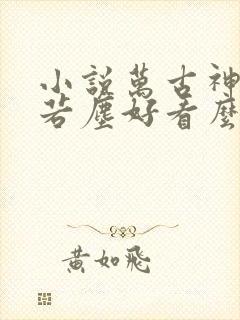 小說萬古神
若塵好看麼
黃如飛